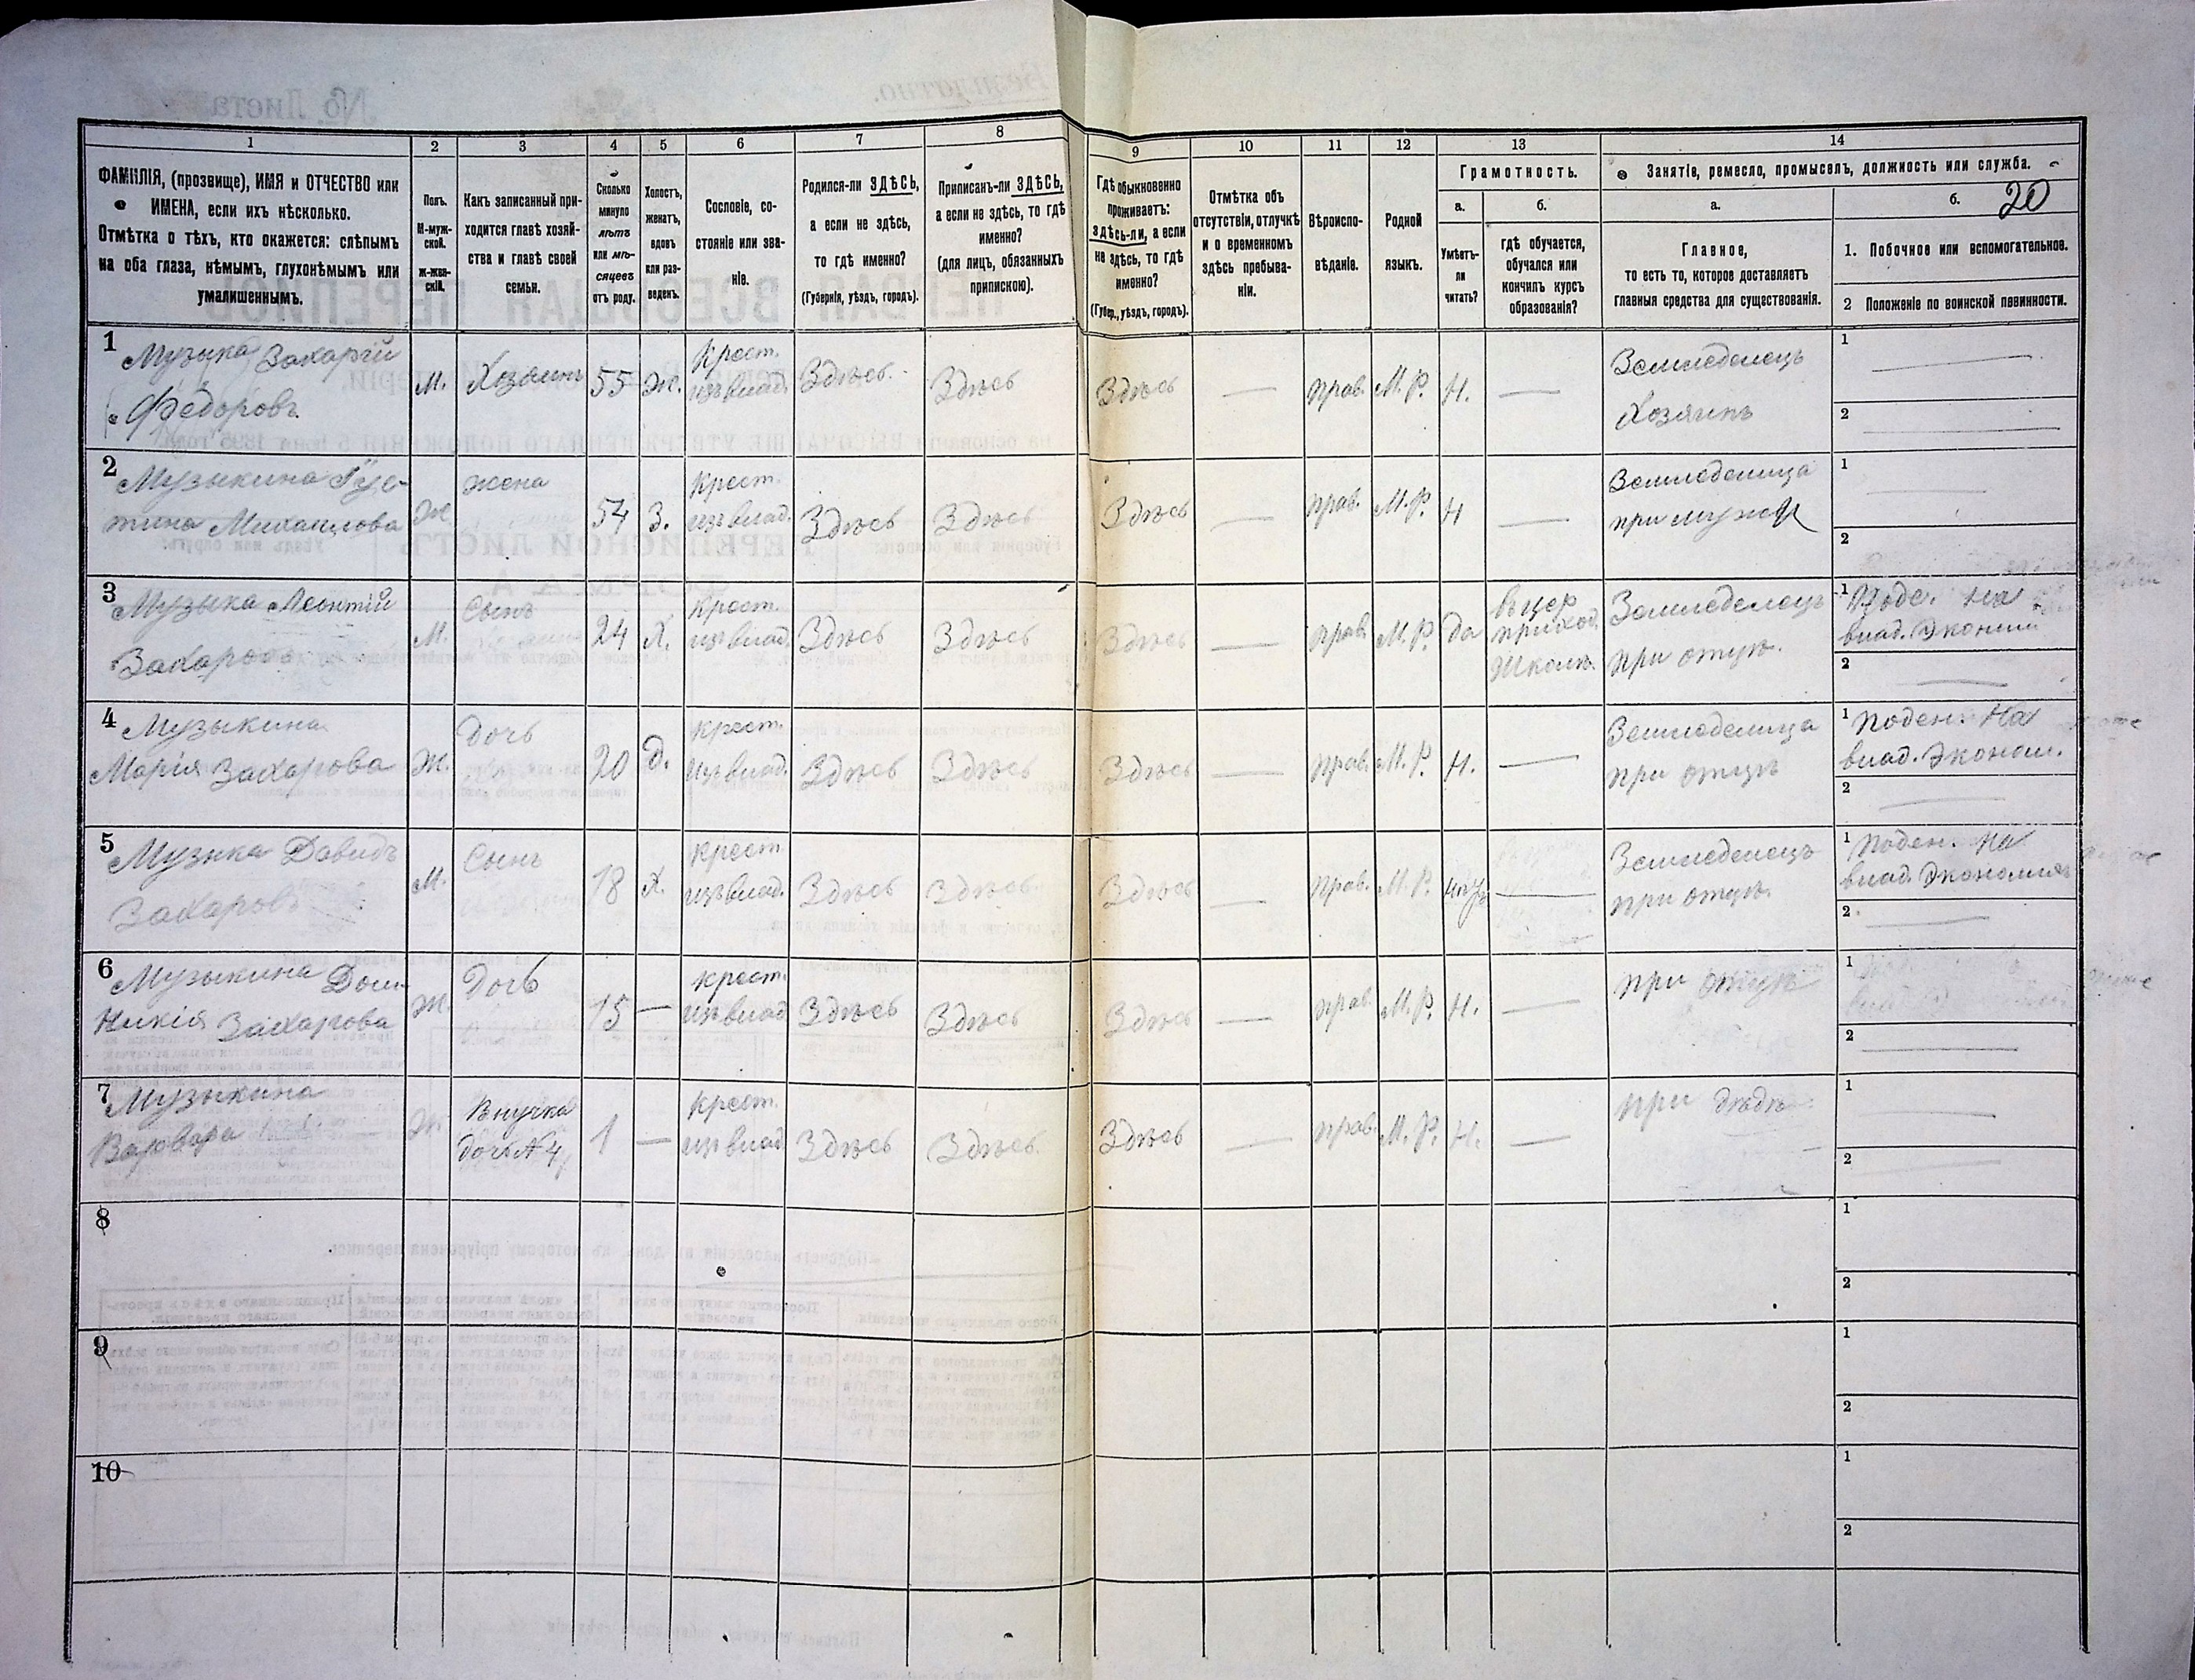 20
1
2
3
4
5
6
7
8
9
10
11
12
13
14
ФАМИЛІЯ, (прозвище), ИМЯ и ОТЧЕСТВО или
ИМЕНА, если ихъ нѣсколько.
Отмѣтка о тѣхъ, кто окажется: слѣпымъ
на оба глаза, нѣмымъ, глухонѣмымъ или
умалишеннымъ.
Полъ.
М-муж-
ской.
ж-жен-
скій.
Какъ записанный при-
ходится главѣ хозяй-
ства и главѣ своей
семьи.
Сколько
минуло
лѣтъ
или мѣ-
сяцевъ
отъ роду.
Холостъ,
женатъ,
вдовъ
или раз-
веденъ.
Сословіе, со-
стояніе или зва-
ніе.
Родился-ли ЗДѢСЬ,
а если не здѣсь,
то гдѣ именно?
(Губернія, уѣздъ, городъ).
Приписанъ-ли ЗДѢСЬ,
а если не здѣсь, то гдѣ
именно?
(для лицъ, обязанныхъ
припискою).
Гдѣ обыкновенно
проживаетъ:
здѣсь-ли, а если
не здѣсь, то гдѣ
именно?
(Губер., уѣздъ, городъ).
Отмѣтка объ
отсутствіи, отлучкѣ
и о временномъ
здѣсь пребыва-
ніи.
Вѣроиспо-
вѣданіе.
Родной
языкъ.
Грамотность.
а.
Умѣетъ-
ли
читать?
б.
гдѣ обучается,
обучался или
кончилъ курсъ
образованія?
Занятіе, ремесло, промыселъ, должность или служба.
а.
Главное,
то есть то, которое доставляетъ
главныя средства для существованія.
б.
1. Побочное или вспомогательное.
2 Положеніе по воинской повинности.
1
Музыка Захарій
Федоровъ
М.
Хозяинъ
55
Ж.
Крест.
изъ влад.
Здѣсь
Здѣсь
Здѣсь
—
Прав.
М. Р.
Н.
—
Земледелецъ
Хозяинъ
1
2
2
Музыкина Гус-
тина Михаилова
Ж
Жена
54
З.
Крест.
изъ влад.
Здѣсь
Здѣсь
Здѣсь
—
Прав.
М. Р.
Н
—
Земледелица
при мужѣ
1
2
3
Музыка Леонтій
Захаровъ
М.
Сынъ
24
Х.
Крест.
изъ влад.
Здѣсь
Здѣсь
Здѣсь
—
Прав.
М. Р.
Да
въ цер.
приход.
Школѣ.
Земледелецъ
при отцѣ.
1 Поде. На
влад. Эконом
2
4
Музыкина
Марія Захарова
Ж.
Дочь
20
Д.
Крест.
изъ влад.
Здѣсь
Здѣсь
Здѣсь
—
Прав.
М. Р.
Н.
—
Земледелица
при отцѣ
1 Поден. На
влад. Эконом.
2
5
Музыка Давидъ
Захаровъ
М.
Сынъ
18
Х.
Крест.
изъ влад.
Здѣсь
Здѣсь
Здѣсь
—
Прав.
М. Р.
—
Земледелецъ
при отцѣ.
1 Поден. На
влад. Экономія
2
6
Музыкина Дом-
никія Захарова
Ж.
Дочь
15
—
Крест.
изъ влад
Здѣсь
Здѣсь
Здѣсь
—
Прав.
М. Р.
Н.
—
при отцѣ
1
2
7
Музыкина
Варвара
Ж
Внучка
доч. №4
1
—
Крест.
изъ влад
Здѣсь
Здѣсь
Здѣсь
—
Прав.
М. Р.
Н.
—
при дѣдѣ
1
2
8
1
2
9
1
2
10
1
2